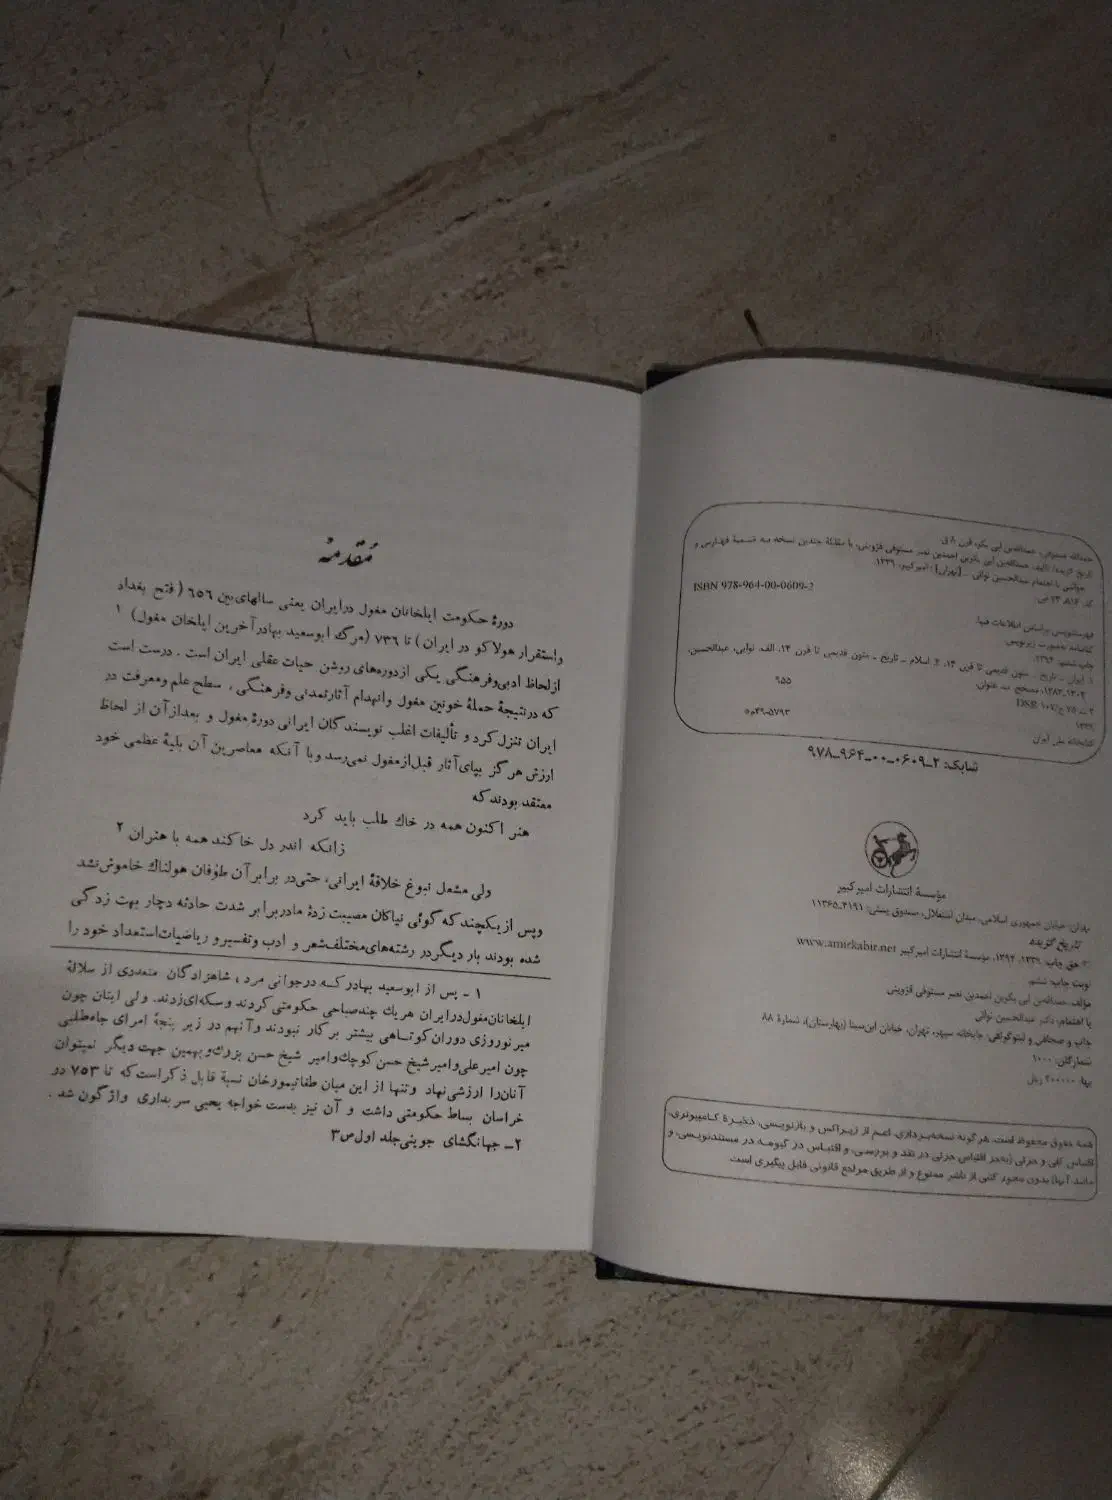 حمدالله مستوفی، حمدالله‌بن ابی بکر، قرن ۸ ق.
تاریخ گزیده/ تألیف حمدالله‌بن ابی بکربن احمدبن نصر مستوفی قزوینی، با مقابلهٔ چندین نسخه به ضمیمهٔ فهارس و
حواشی با اهتمام عبدالحسین نوائی. ـ [تهران]: امیرکبیر، ۱۳۳۹.
ISBN 978-964-00-0609-2
فهرستنویسی براساس اطلاعات فیپا.
کتابنامه به‌صورت زیرنویس.
چاپ ششم: ۱۳۹۴.
۱. ایران ـ تاریخ ـ متون قدیمی تا قرن ۱۴. ۲. اسلام ـ تاریخ ـ متون قدیمی تا قرن ۱۴. الف. نوایی، عبدالحسین،
۱۳۰۲ـ۱۳۸۳، مصحح. ب. عنوان.
۹۵۵
DSR
۱۳۳۹
م۴۹ـ۵۷۹۳
کتابخانه ملی ایران
شابک: ۲ـ۰۶۰۹ـ۰۰ـ۹۶۴ـ۹۷۸
مؤسسهٔ انتشارات امیرکبیر
تهران: خیابان جمهوری اسلامی، میدان استقلال، صندوق پستی: ۴۱۹۱ـ۱۱۳۶۵
تاریخ گزیده
© حق چاپ: ۱۳۳۹، ۱۳۹۴، مؤسسهٔ انتشارات امیرکبیر www.amirkabir.net
نوبت چاپ: ششم
مؤلف: حمدالله‌بن ابی بکربن احمدبن نصر مستوفی قزوینی
با اهتمام: دکتر عبدالحسین نوائی
چاپ و صحافی و لیتوگرافی: چاپخانه سپهر، تهران، خیابان ابن‌سینا (بهارستان)، شمارهٔ ۸۸
شمارگان: ۱۰۰۰
بها: ۴۰۰۰۰۰ ریال
همهٔ حقوق محفوظ است. هرگونه نسخه‌برداری، اعم از زیراکس و بازنویسی، ذخیرهٔ کامپیوتری،
اقتباس کلی و جزئی (به‌جز اقتباس جزئی در نقد و بررسی، و اقتباس در گیومه در مستندنویسی، و
مانند آنها) بدون مجوز کتبی از ناشر ممنوع و از طریق مراجع قانونی قابل پیگیری است.
مُقدمهٔ
دورهٔ حکومت ایلخانان مغول درایران یعنی سالهای‌بین ۶۵۶ (فتح بغداد
واستقرار هولاکو در ایران) تا ۷۳۶ (مرگ ابوسعید بهادرآخرین ایلخان مغول) ۱
ازلحاظ ادبی‌وفرهنگی یکی ازدوره‌های روشن حیات عقلی ایران است. درست است
که درنتیجهٔ حملهٔ خونین مغول وانهدام آثارتمدنی وفرهنگی، سطح علم‌ومعرفت در
ایران تنزل‌کرد و تألیفات اغلب نویسندگان ایرانی دورهٔ مغول و بعدازآن از لحاظ
ارزش هرگز بپای‌آثار قبل‌ازمغول نمی‌رسد وبا آنکه معاصرین آن بلیهٔ عظمی خود
معتقد بودند که
هنر اکنون همه در خاك طلب باید کرد
زانکه اندر دل خاکند همه با هنران ۲
ولی مشعل نبوغ خلاقهٔ ایرانی، حتی‌در برابرآن طوفان هولناك خاموش‌نشد
وپس ازیکچند که گوئی نیاکان مصیبت زدهٔ مادربرابر شدت حادثه دچار بهت زدگی
شده بودند بار دیگردر رشته‌های‌مختلف‌شعر و ادب وتفسیرو ریاضیات‌استعداد خود را
۱ ـ پس از ابوسعید بهادرکه درجوانی مرد، شاهزادگان متعددی از سلالهٔ
ایلخانان‌مغول‌درایران هریك چندصباحی حکومتی کردند وسکه‌ای‌زدند. ولی اینان چون
میرنوروزی دوران‌کوتاهی بیشتر برکار نبودند وآنهم در زیر پنجهٔ امرای جاه‌طلبی
چون امیرعلی‌وامیرشیخ حسن‌کوچك‌وامیر شیخ حسن بزرگ‌وبهمین جهت دیگر نمیتوان
آنان‌را ارزشی‌نهاد وتنها از این میان طغاتیمورخان نسبة قابل ذکراست‌که تا ۷۵۳ در
خراسان بساط حکومتی داشت و آن نیز بدست خواجه یحیی سربداری واژگون شد.
۲ـ جهانگشای جوینی‌جلد اول‌ص۳